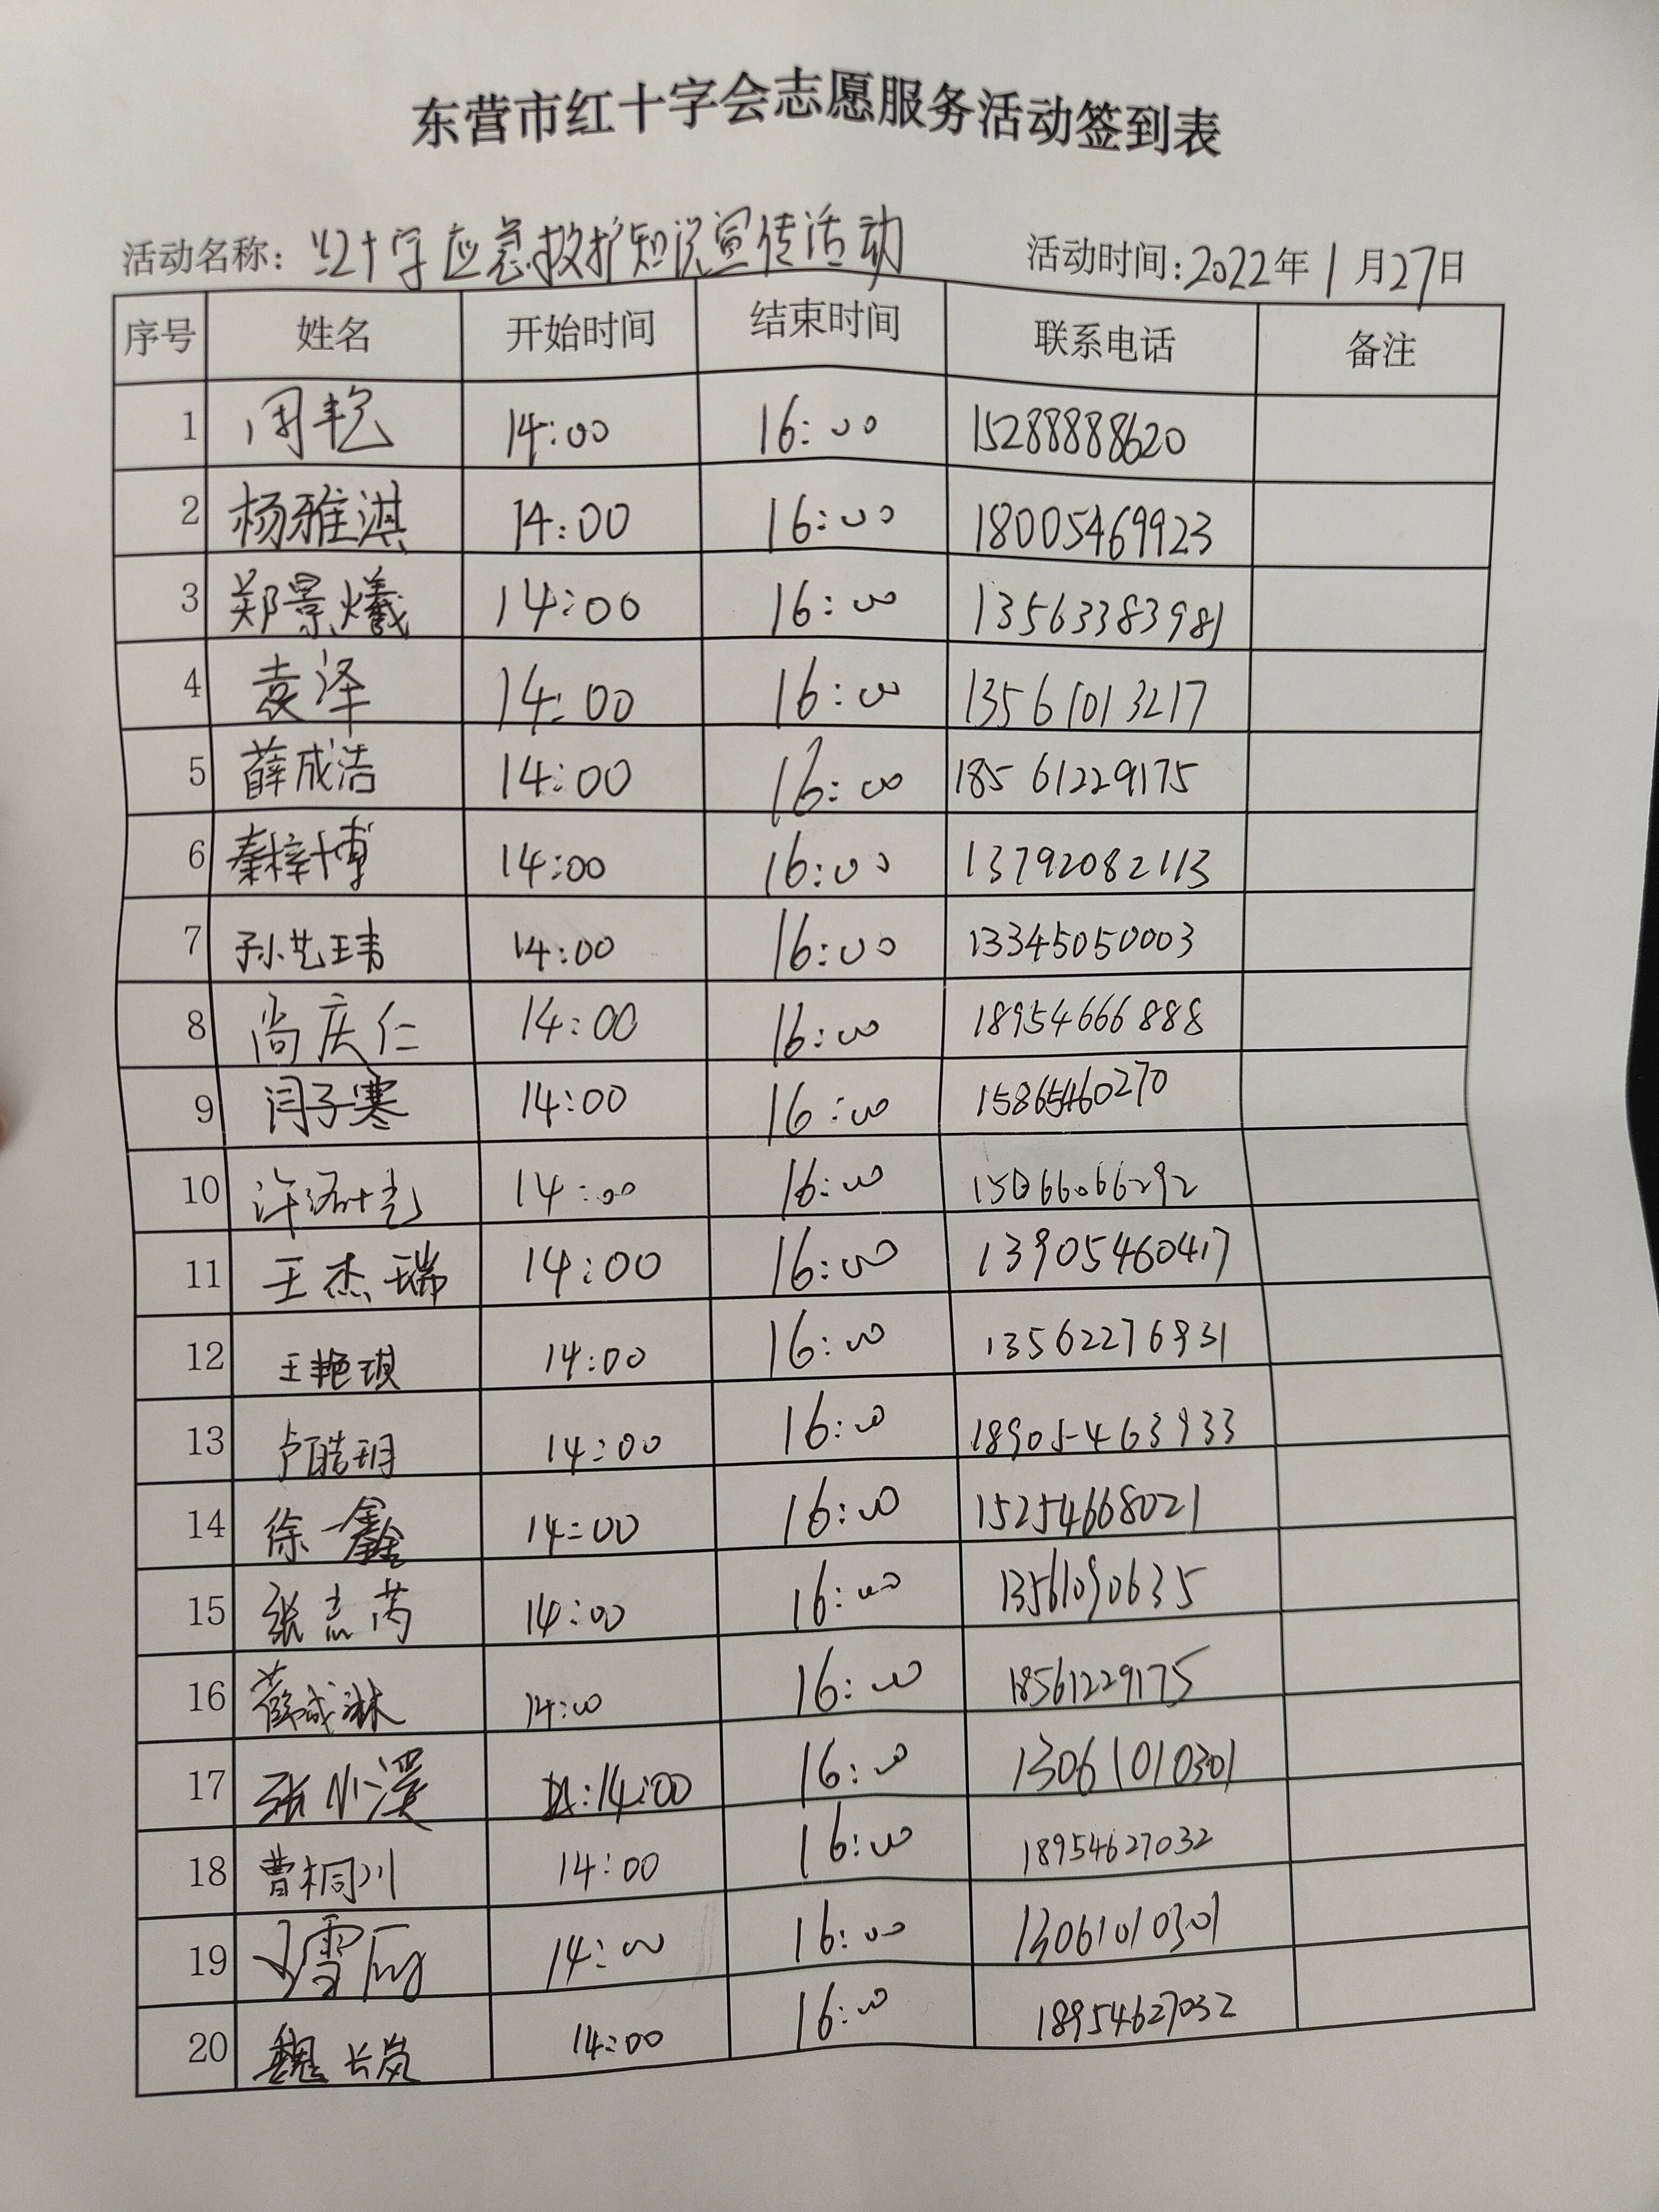 东营市红十字会志愿服务活动签到表
活动名称: 红十字应急救护知识宣传活动 活动时间:2022年1月27日
序号 姓名 开始时间 结束时间 联系电话 备注
1 周艳 14:00 16:00 15288888620
2 杨雅淇 14:00 16:00 18005469923
3 郑景曦 14:00 16:00 13563383981
4 袁泽 14:00 16:00 13561013217
5 薛成浩 14:00 16:00 18561229175
6 秦梓博 14:00 16:00 13792082113
7 孙艺玮 14:00 16:00 13345050003
8 尚庆仁 14:00 16:00 18954666888
9 闫子骞 14:00 16:00 15865460270
10 14:00 16:00 15066066292
11 王杰瑞 14:00 16:00 13905460417
12 王艳琪 14:00 16:00 13562276931
13 卢皓玥 14:00 16:00 18905463933
14 徐一鑫 14:00 16:00 15254668021
15 张志芮 14:00 16:00 13561090635
16 薛成淋 14:00 16:00 18561229175
17 张小溪 14:00 16:00 13061010301
18 曹桐川 14:00 16:00 18954627032
19 14:00 16:00 13061010301
20 魏长岚 14:00 16:00 18954627032